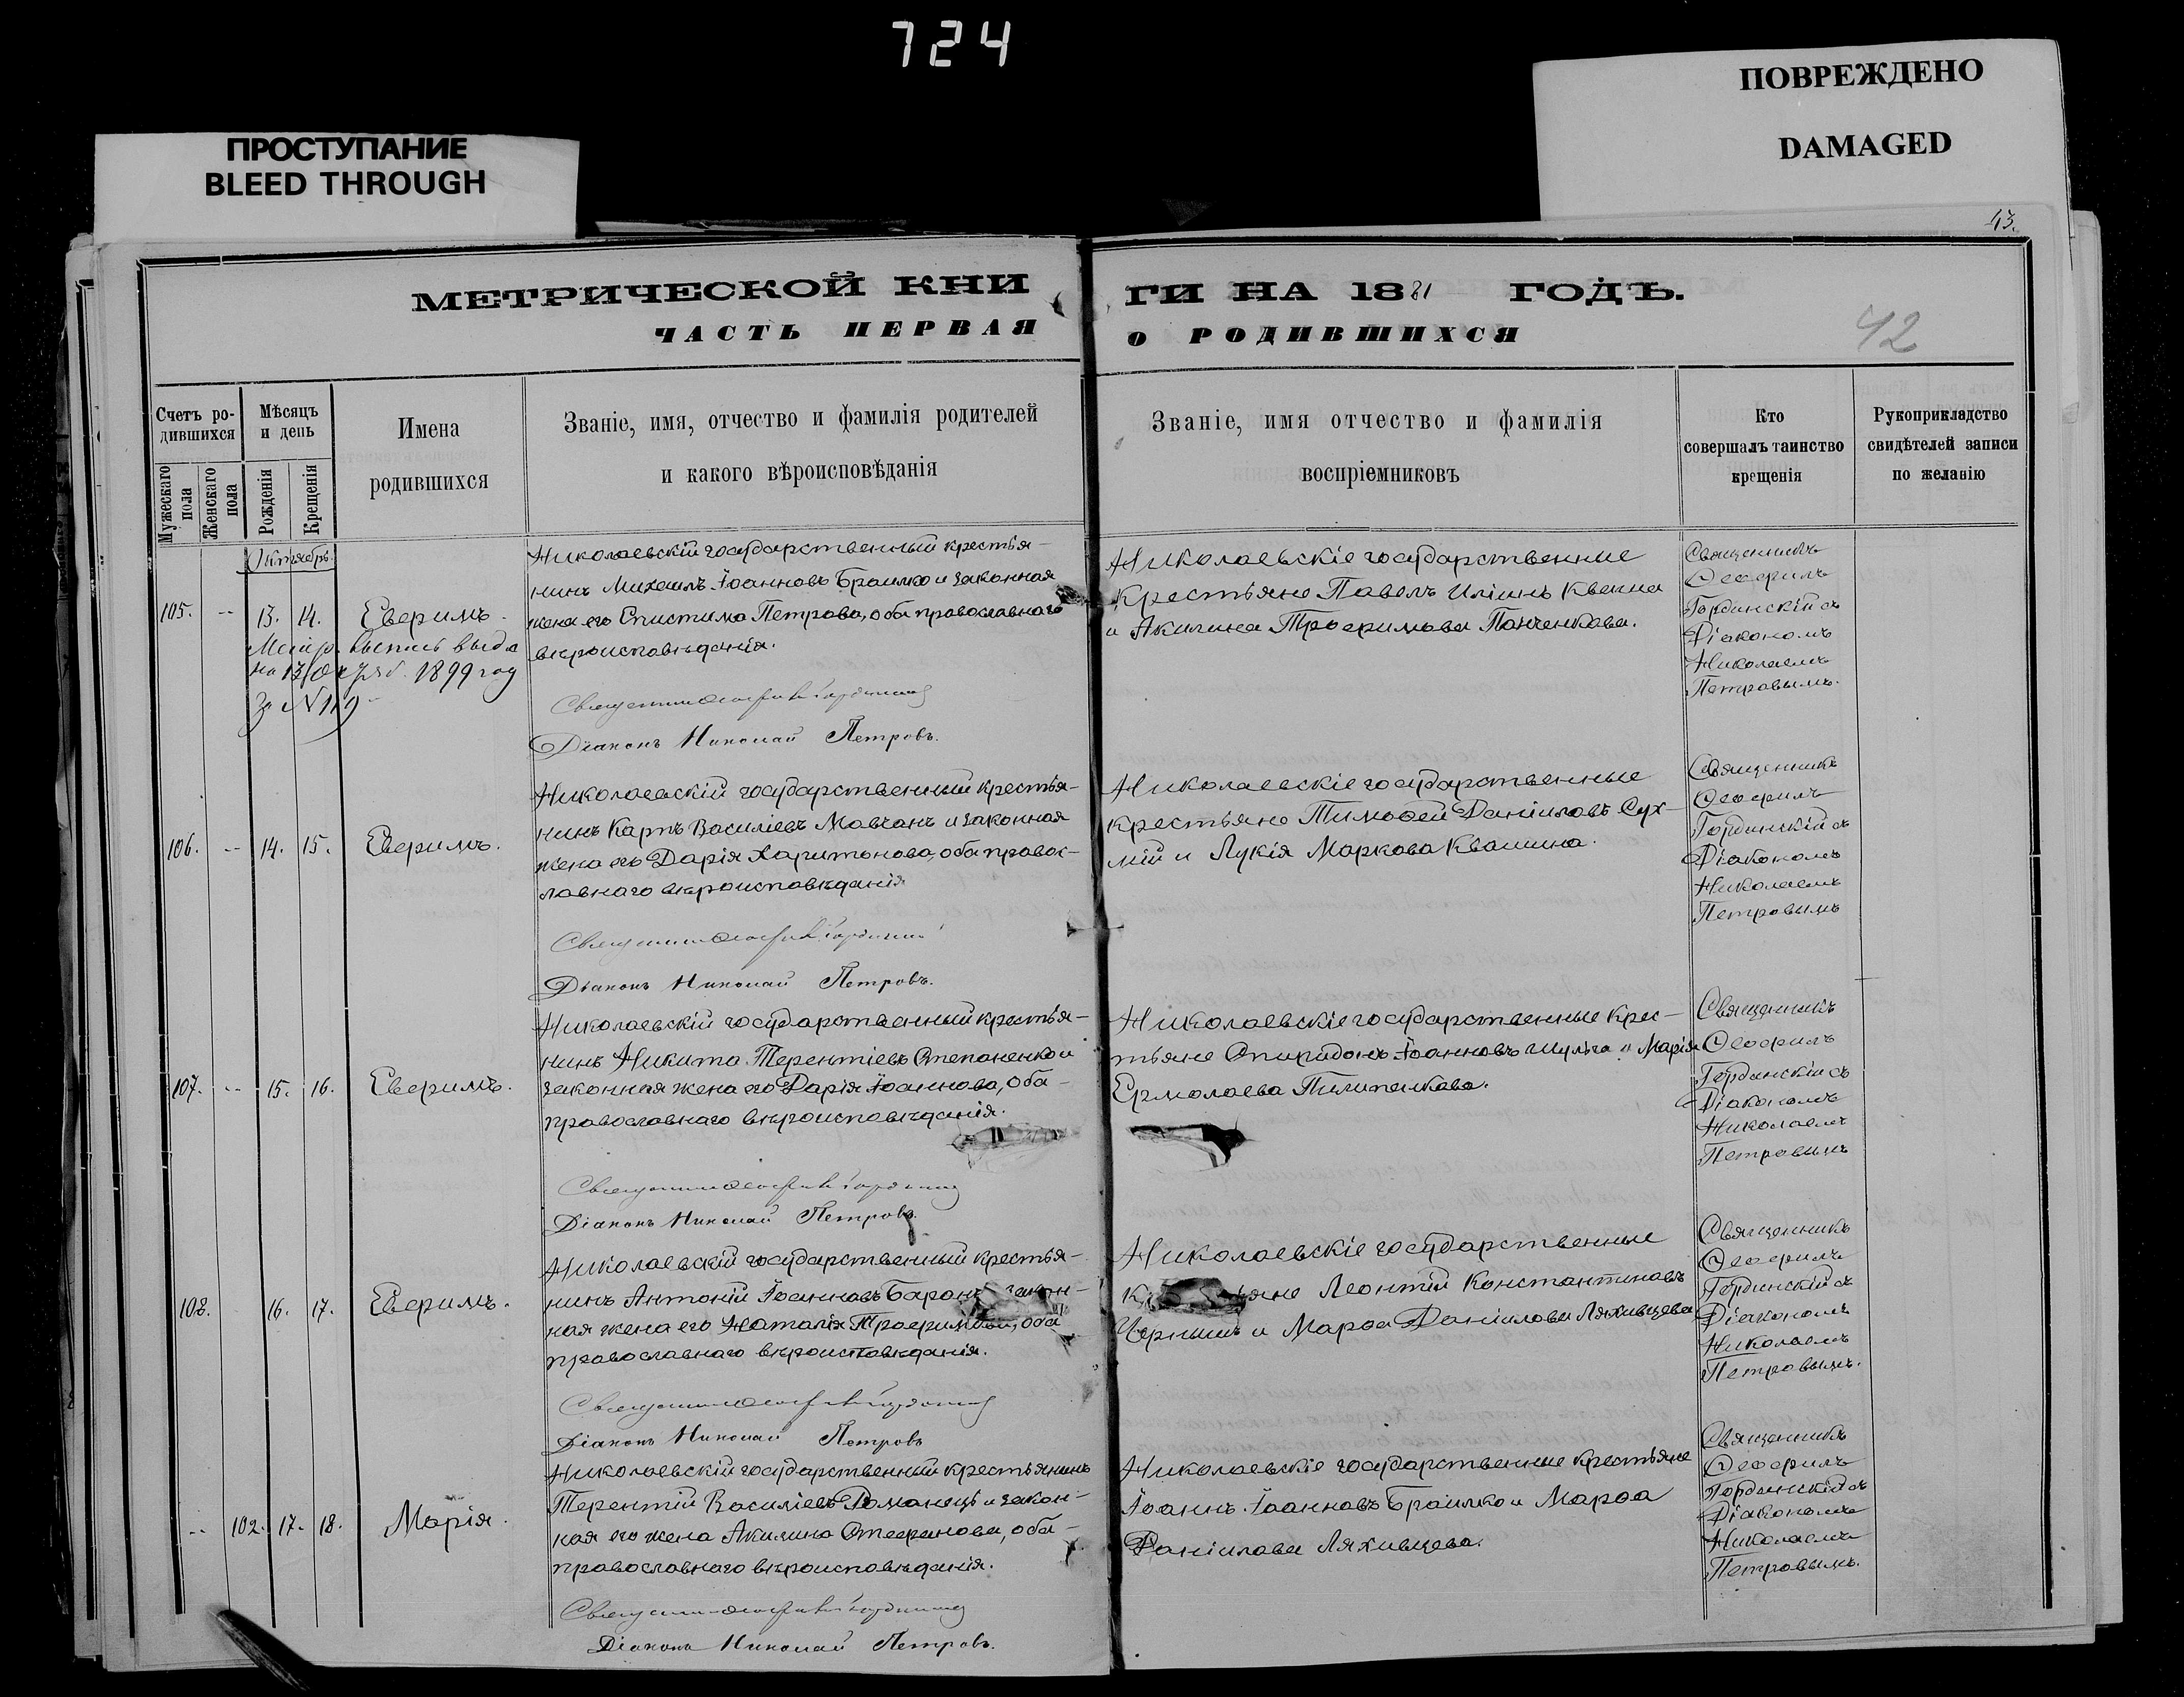 724
ПРОСТУПАНИЕ
BLEED THROUGH
ПОВРЕЖДЕНО
DAMAGED
43.
МЕТРИЧЕСКОЙ КНИ
ГИ НА 1881 ГОДЪ.
ЧАСТЬ ПЕРВАЯ
О РОДИВШИХСЯ
42
Счетъ ро-
дившихся
Мужескаго
пола
Женскаго
пола
Мѣсяцъ
и день
Рожденія
Крещенія
Имена
родившихся
Званіе, имя, отчество и фамилія родителей
и какого вѣроисповѣданія
Званіе, имя отчество и фамилія
воспріемниковъ
Кто
совершалъ таинство
крещенія
Рукоприкладство
свидѣтелей записи
по желанію
Октябрь
105. -- 13. 14. Еверимъ.
1899 год
за № 119
Николаевскій государственный крестья-
нинъ Михаилъ Іоанновъ Браилко и законная
жена его Епистима Петрова, оба православнаго
вѣроисповѣданія.
Діаконъ Николай Петровъ.
Николаевскіе государственные
крестьяне Павелъ Иліинъ Квакша
и Акилина Трофимова Панченкова.
Священникъ
Ѳеофилъ
Гординскій съ
Діакономъ
Николаемъ
Петровымъ.
106. -- 14. 15. Еверимъ.
Николаевскій государственный крестья-
нинъ Карпъ Василіевъ Мовчанъ и законная
жена его Дарія Харитонова, оба правос-
лавнаго вѣроисповѣданія
Діаконъ Николай Петровъ.
Николаевскіе государственные
крестьяне Тимоѳей Даніиловъ Сух-
мій и Лукія Маркова Квашина.
Священникъ
Ѳеофилъ
Гординскій съ
Діакономъ
Николаемъ
Петровымъ
107. -- 15. 16. Еверимъ.
Николаевскій государственный крестья-
нинъ Никита Терентіевъ Степаненко и
законная жена его Дарія Іоаннова, оба
православнаго вѣроисповѣданія.
Діаконъ Николай Петровъ.
Николаевскіе государственные крес-
тьяне Спиридонъ Іоанновъ Шульга и Марія
Ермолаева Пилипенкова.
Священникъ
Ѳеофилъ
Гординскій съ
Діакономъ
Николаемъ
Петровымъ
108. 16. 17. Еверимъ.
Николаевскій государственный крестья-
нинъ Антоній Іоанновъ Баранъ закон-
ная жена его Наталія Трофимова, оба
православнаго вѣроисповѣданія.
Діаконъ Николай Петровъ
Николаевскіе государственные
Леонтій Константиновъ
Чернышъ и Марѳа Даніилова Ляхивцева
Священникъ
Ѳеофилъ
Гординскій съ
Діакономъ
Николаемъ
Петровымъ.
-- 102. 17. 18. Марія.
Николаевскій государственный крестьянинъ
Терентій Василіевъ Романецъ и закон-
ная его жена Акилина Стефанова, оба
православнаго вѣроисповѣданія.
Діаконъ Николай Петровъ.
Николаевскіе государственные крестьяне
Іоаннъ Іоанновъ Браилко и Марѳа
Даніилова Ляхивцева.
Священникъ
Ѳеофилъ
Гординскій съ
Діакономъ
Николаемъ
Петровымъ.